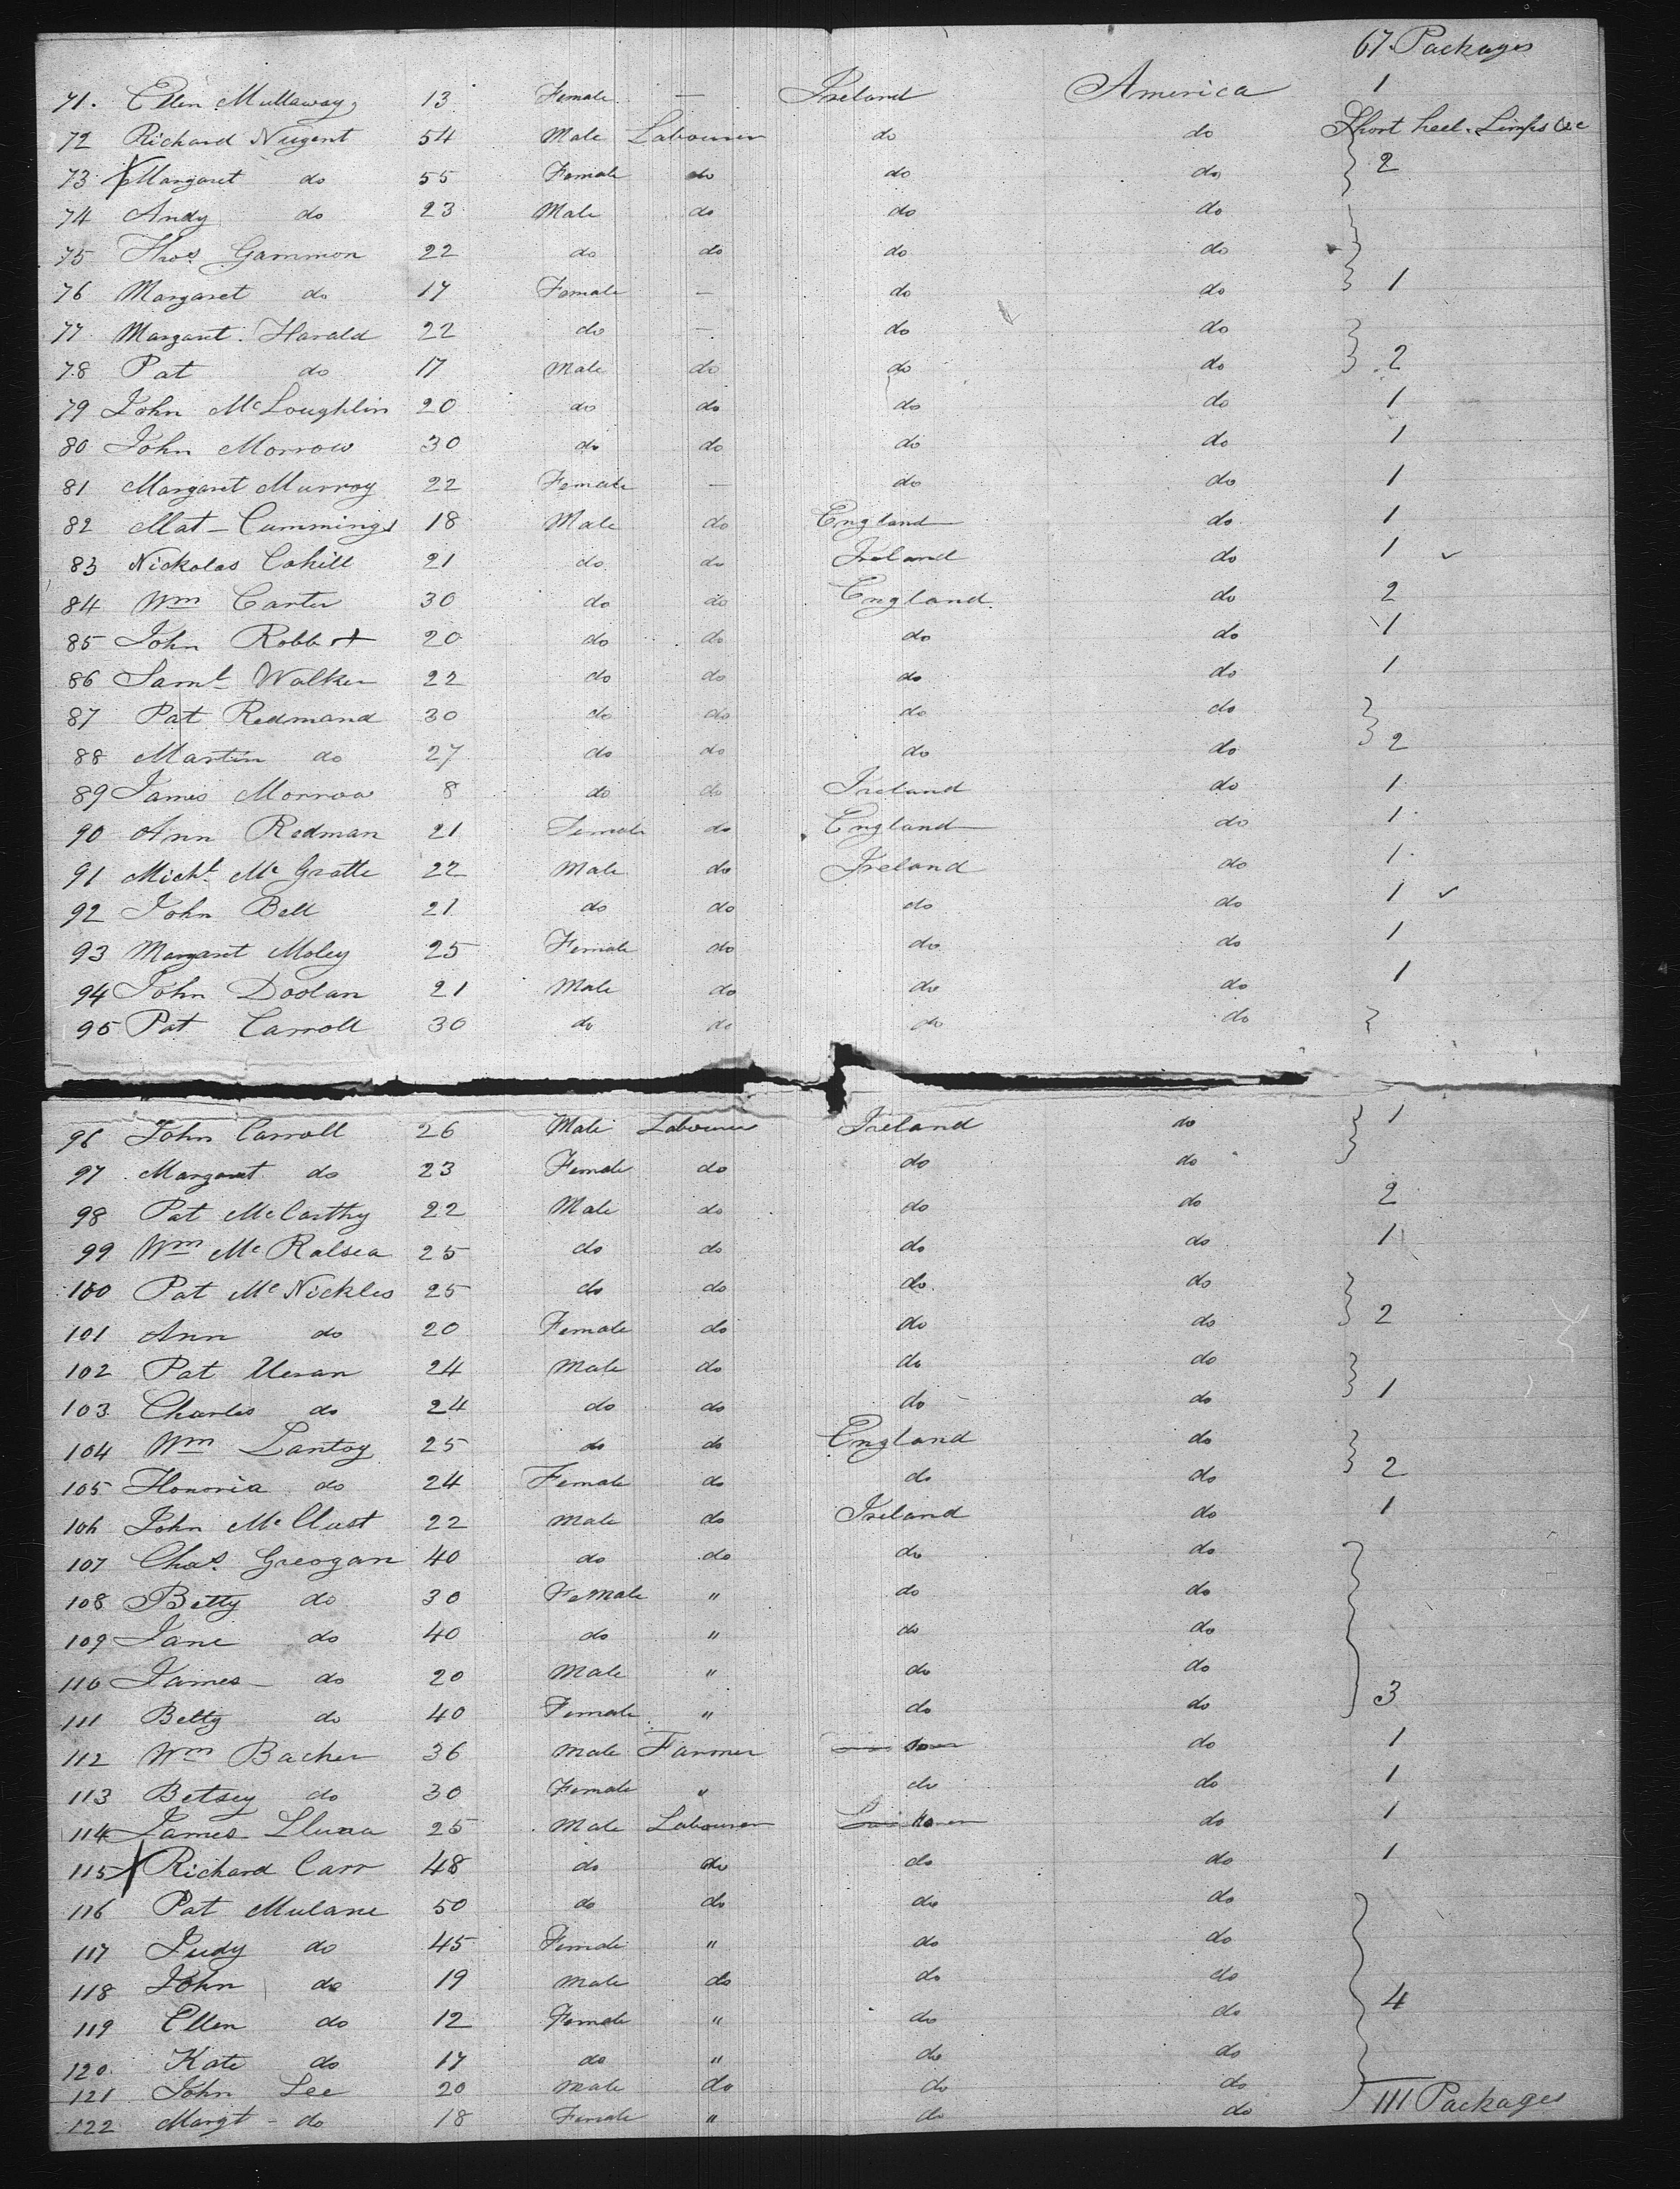 67 Packages
71. Ellen Mullaway 13 Female — Ireland America 1
72 Richard Nugent 54 Male Labourer do do Short heel. Limps &c
73 Margaret do 55 Female do do do 2
74 Andy do 23 Male do do do
75 Thos Gammon 22 do do do do
76 Margaret do 17 Female — do do 1
77 Margaret Harald 22 do — do do
78 Pat do 17 Male do do do 2
79 John McLoughlin 20 do do do do 1
80 John Morrow 30 do do do do 1
81 Margaret Murray 22 Female — do do 1
82 Mat Cummings 18 Male do England do 1
83 Nickolas Cohill 21 do do Ireland do 1
84 Wm Carter 30 do do England do 2
85 John Robb 20 do do do do 1
86 Saml Walker 22 do do do do 1
87 Pat Redmand 30 do do do do
88 Martin do 27 do do do do 2
89 James Morrow 8 do do Ireland do 1
90 Ann Redman 21 Female do England do 1
91 Michl McGratte 22 Male do Ireland do 1
92 John Bell 21 do do do do 1
93 Margaret Moley 25 Female do do do 1
94 John Doolan 21 Male do do do 1
95 Pat Carroll 30 do do do do
96 John Carroll 26 Male Labourer Ireland do 1
97 Margaret do 23 Female do do do
98 Pat McCarthy 22 Male do do do 2
99 Wm McRalsea 25 do do do do 1
100 Pat McNickles 25 do do do do
101 Ann do 20 Female do do do 2
102 Pat 24 Male do do do
103 Charles do 24 do do do do 1
104 Wm Lantoy 25 do do England do
105 Honoria do 24 Female do do do 2
106 John McClust 22 Male do Ireland do 1
107 Chas. Greogan 40 do do do do
108 Betty do 30 Female " do do
109 Jane do 40 do " do do
110 James do 20 Male " do do
111 Betty do 40 Female " do do 3
112 Wm Bacher 36 Male Farmer do do 1
113 Betsey do 30 Female " do do 1
114 James 25 Male Labourer do do 1
115 Richard Carr 48 do do do do 1
116 Pat Mulane 50 do do do do
117 Judy do 45 Female " do do
118 John do 19 Male do do do
119 Ellen do 12 Female " do do 4
120 Kate do 17 do " do do
121 John Lee 20 Male do do do
122 Margt do 18 Female " do do
111 Packages